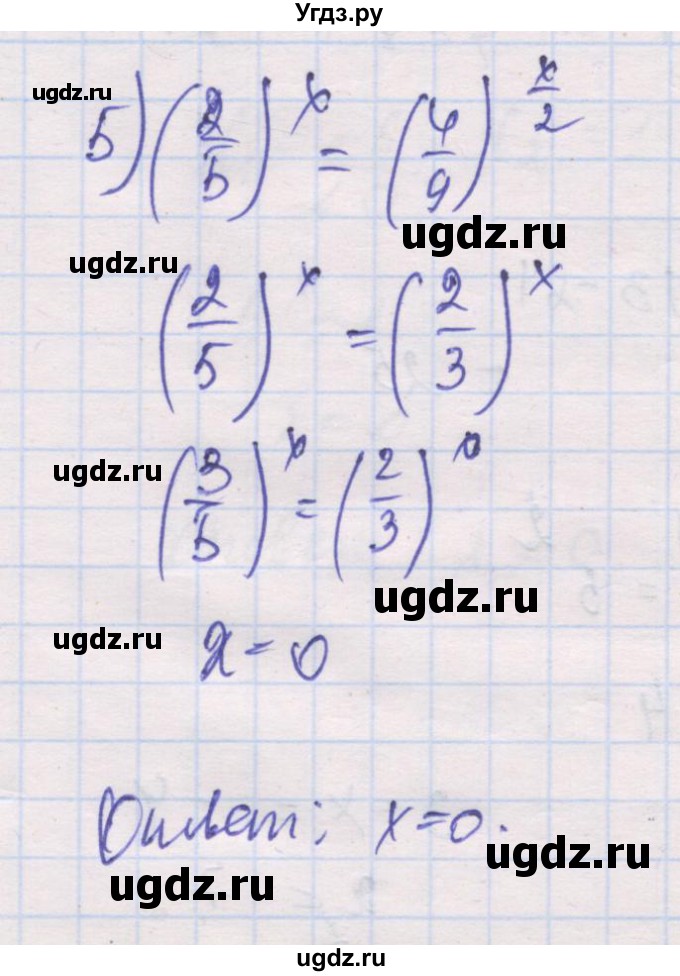 Угдз.ру
ugdz.ru
5) (2/5)^x = (4/9)^(x/2)
ugdz.ru
ugdz.ru
(2/5)^x = (2/3)^x
ugdz.ru
(3/5)^x = (2/3)^0
ugdz.ru
ugdz.ru
x = 0
Ответ: x = 0.
ugdz.ru
ugdz.ru
ugdz.ru